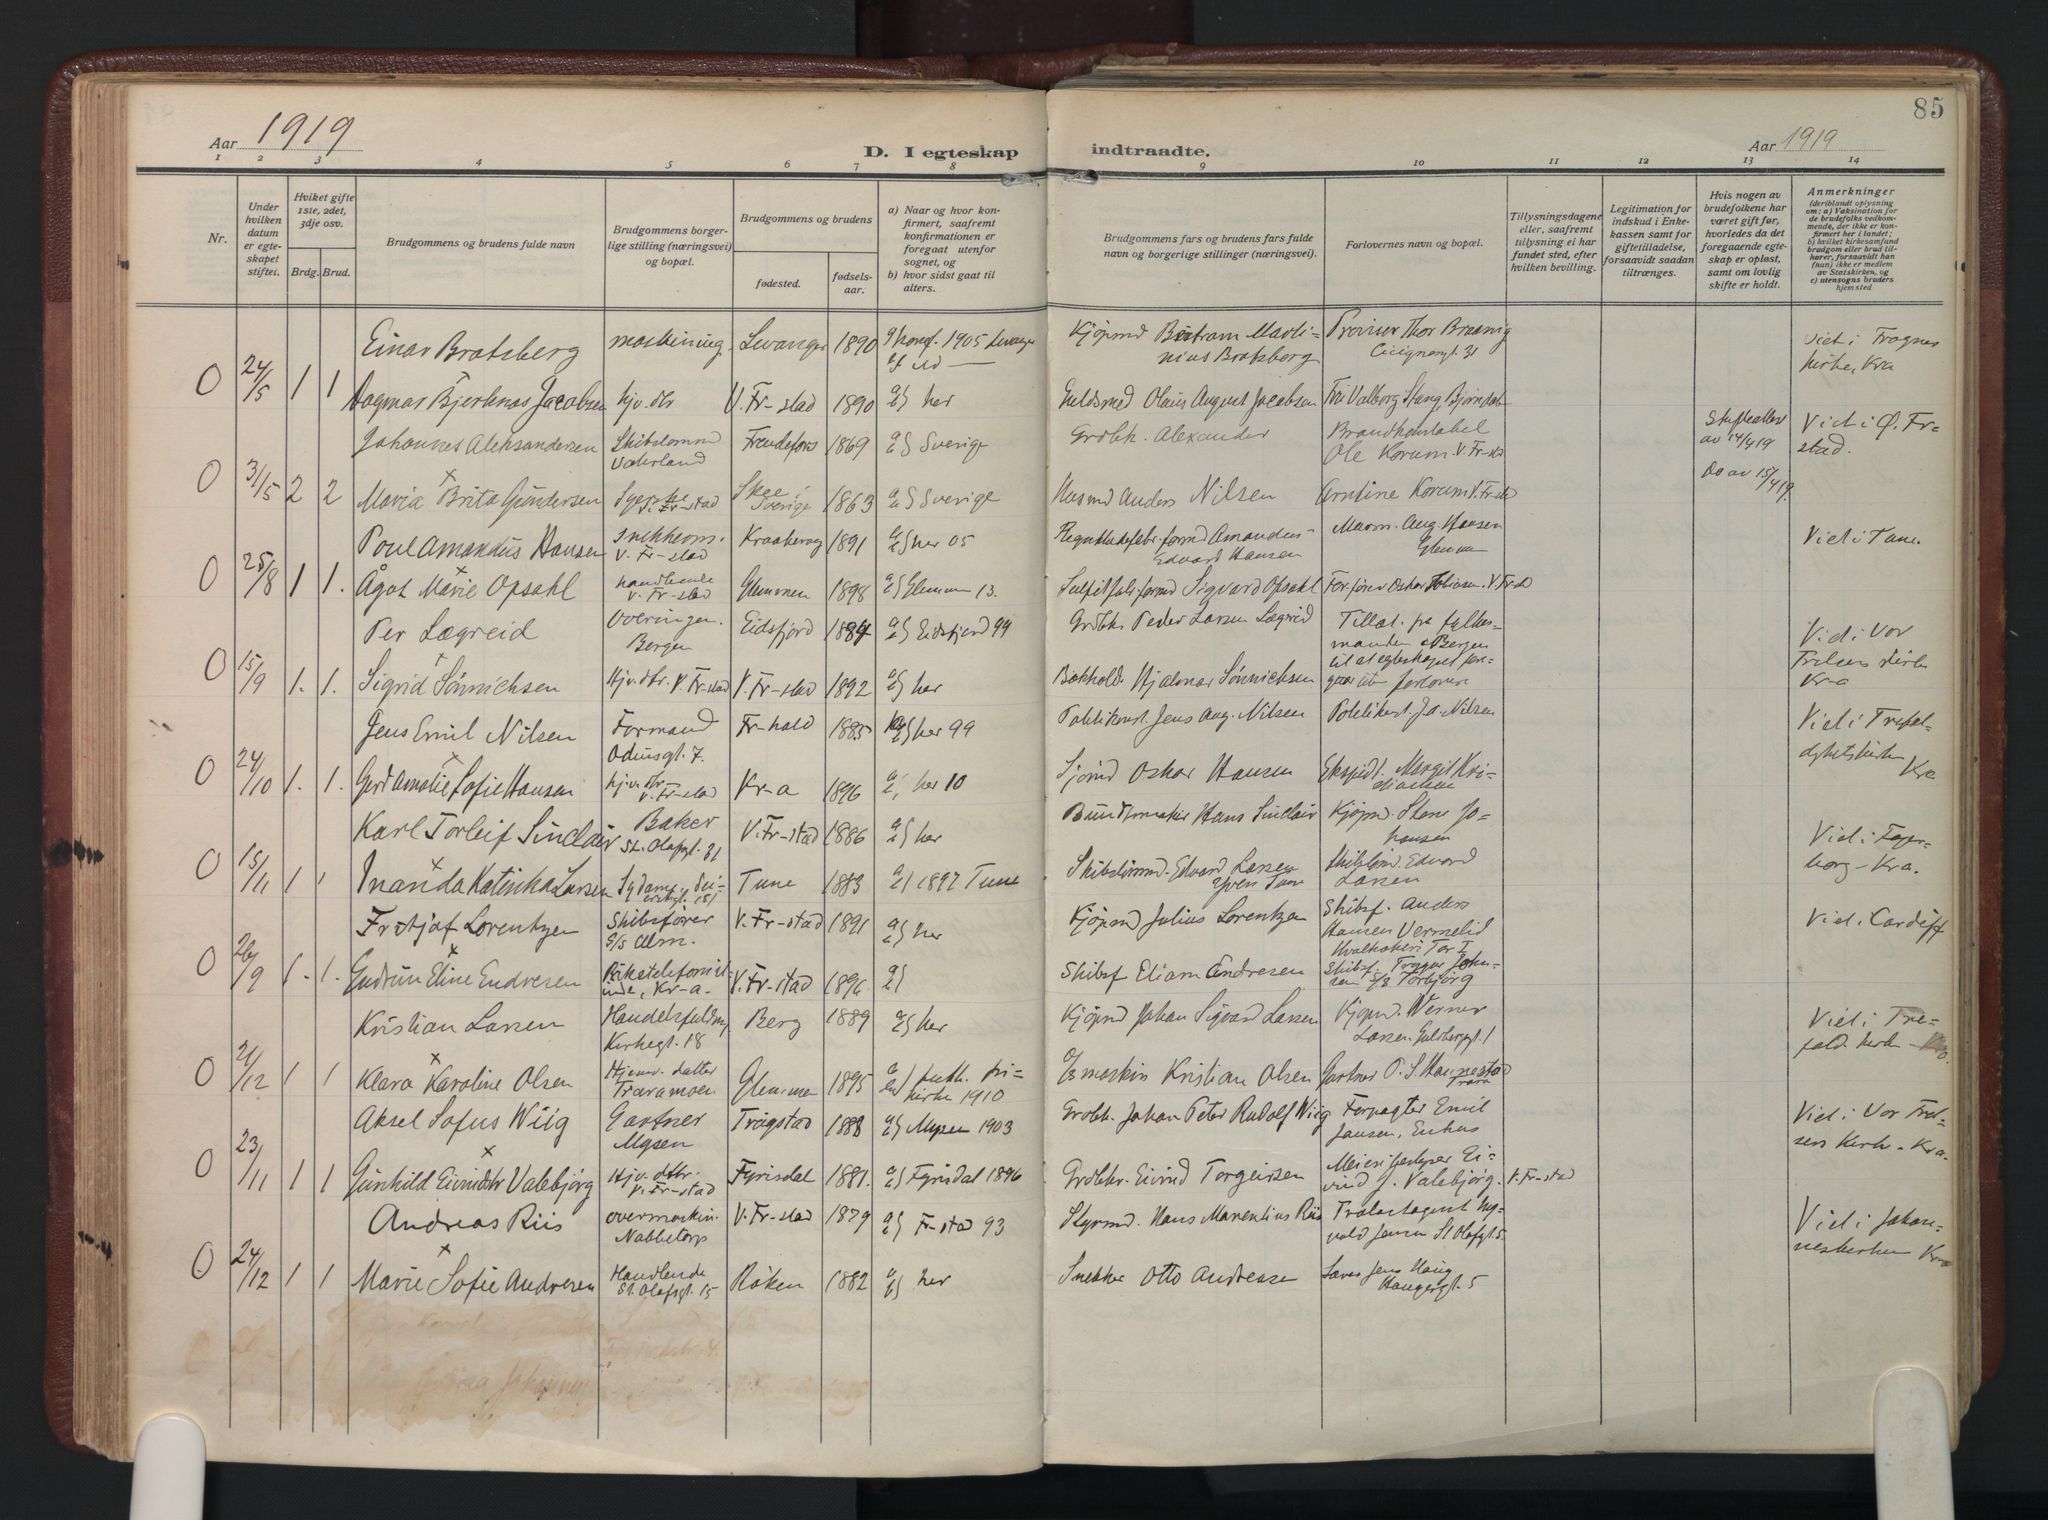 85
Aar 1919
D. I egteskap
indtraadte.
Aar 1919
1 2 3 4 5 6 7 8 9 10 11 12 13 14
Nr.
Under hvilken datum er egteskapet stiftet.
Hviket gifte 1ste, 2det, 3dje osv.
Brdg. Brud.
Brudgommens og brudens fulde navn
Brudgommens borgerlige stilling (næringsvei) og bopæl.
Brudgommens og brudens
fødested. fødsels-aar.
a) Naar og hvor konfirmert, saafremt konfirmationen er foregaat utenfor sognet, og
b) hvor sidst gaat til alters.
Brudgommens fars og brudens fars fulde navn og borgerlige stillinger (næringsvei).
Forlovernes navn og bopæl.
Tillysningsdagene eller, saafremt tillysning ei har fundet sted, efter hvilken bevilling.
Legitimation for indskud i Enkekassen samt for giftetilladelse, forsaavidt saadan tiltrænges.
Hvis nogen av brudefolkene har været gift før, hvorledes da det foregaaende egteskap er opløst, samt om lovlig skifte er holdt.
Anmerkninger (deriblandt oplysning om: a) Vaksination for de brudefolks vedkommende, der ikke er konfirmert her i landet; b) hvilket kirkesamfund brudgom eller brud tilhører, forsaavidt han (hun) ikke er medlem av Statskirken, og c) utensogns bruders hjemsted
Einar Bratsberg maskining. Levanger 1890 konf. 1905 Levanger Kjøpmd Bertram Martinius Bratsberg Provisor Thor Braanig Cicignongt. 31 Viet i Frogner kirke, Kra
0 24/5 1 1 Dagmar Bjerknes Jacobsen hjv. dtr V. Fr-stad 1890 a/b} her Guldsmed Olaus August Jacobsen Fru Valborg Stang, Bjørndal
Johannes Aleksandersen Skibstømmd Vaterland Frendefors 1869 a/b} Sverige Grdbk. Alexander Brandkonstabel Ole Korum V. Fr-stad Skifteattest av 14/4 19 Viet i Ø. Fr-stad.
0 31/5 2 2 Maria Brita Gundersen Syerske V. Fr-stad Skee i Sverige 1863 a/b} Sverige Husmd Anders Nilsen Arntine Korum V. Fr-stad Do av 15/4 19.
Poul Amandus Hansen snekkerm. V. Fr-stad Kraakerøy 1891 a/b} her 05 formd Amandus Edvard Hansen Murm. Aug. Hansen Glemmen Viet i Tune.
0 25/8 1 1. Ågot Marie Opsahl handlende V. Fr-stad Glemmen 1898 a/b} Glemmen 13. formd Sigvard Opsahl Forfører Oskar Tobiasen. V. Fr-stad
Per Lægreid overingen. Bergen Eidsfjord 1884 a/b} Eidsfjord 99 Grdbk Peder Larsen Lægreid Tillat. fra fylkesmanden i Bergen til at egteskapet foregaar uten forlovere Viet i Vor Frelsers kirke Kr-a
0 15/9 1. 1. Sigrid Sønnichsen Hjv. dtr. V. Fr-stad V. Fr-stad 1892 a/b} her Bokhold. Hjalmar Sønnichsen
Jens Emil Nilsen Formand Odinsgt. 7. Fr-hald 1885 a/b} her 99 Politikonst. Jens Aug. Nilsen Politikonst. Ja. Nilsen Viet i Trefoldighetskirken Kra
0 24/10 1. 1. Gerd Amalie Sofie Hansen hjv. dtr V. Fr-stad Kr-a 1896 a/b} her 10 Sjømd Oskar Hansen Ekspedt. Margit Kristiansen
Karl Torleif Sinclair Baker St. Olafsgt. 31 V. Fr-stad 1886 a/b} her Bundtmaker Hans Sinclair Kjøpmd. Stene Johansen Viet i Fagerborg - Kra.
0 15/11 1 1 Inanda Katinka Larsen Sydame, 181 Tune 1883 a/b} 1897 Tune Skibstømmd. Edvard Larsen Skibstmd. Edvard Larsen
Fritjof Lorentzen Skibsfører S/S Ulm. V. Fr-stad 1891 a/b} her Kjøpmd Julius Lorentzen Skibsf. Anders Hansen Vermelid Hvalkokeri Tor I Viet i Cardiff
0 26/9 1. 1. Gudrun Eline Endresen Rikstelefonistinde, Kr-a. V. Fr-stad 1896 a/b} Skibsf Eliam Endresen Skibsf. Trygve Johnsen S/S Torbjørg
Kristian Larsen Handelsfuldm. Kirkegt. 18 Berg 1889 a/b} her Kjøpmd Johan Sigvard Larsen Kjøpmd. Werner Larsen Guldbergsgt. 1 Viet i Trefold. kirke - Kra.
0 21/12 1 1 Klara Karoline Olsen Hjemv. datter Traramoen Glemmen 1895 a/b} luth. frikirke 1910 maskin Kristian Olsen Gartner O. S. Haugestad Trara
Aksel Sofus Wiig Gartner Mysen Trøgstad 1888 a/b} Mysen 1903 Grdbk. Johan Peter Rudolf Wiig Forpagter Emil Jansen, Enhus Viet i Vor Frelsers Kirke - Kra.
0 23/11 1 1 Gunhild Eivindsdtr Valebjørg Hjv. dtr. V. Fr-stad Fyrisdal 1881. a/b} Fyrisdal 1896 Grdbkr. Eivind Torgeirsen Meieribestyrer Eivind J. Valebjørg. V. Fr-stad
Andreas Riis overmaskin. Nabbetorp V. Fr-stad 1879 a/b} Fr-stad 93 Styrmd. Hans Marentius Riis Trælastagent Nyvold Jensen St. Olafsgt 5. Viet i Johanneskirken Kra
0 24/12 1 1 Marie Sofie Andresen Handlende St. Olafsgt. 15 Røken 1882 a/b} her Snekker Otto Andresen Jens Haug Haugesgt. 5